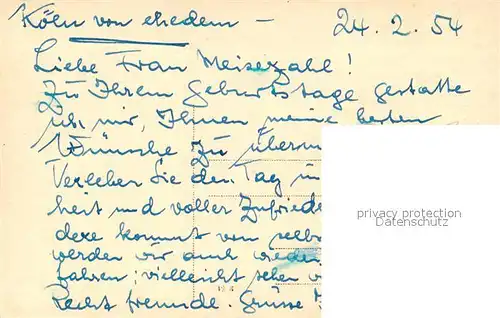 Köln von ehedem – 24. 2. 54
Liebe Frau Meisezahl!
Zu Ihrem Geburtstage gestatte
ich mir, Ihnen meine besten
Wünsche zu überm
Verleben Sie den Tag in
heit und voller Zufriede
dere kommt von selbs
werden wir auch wieder
fahren; vielleicht sehen w
Recht freundl. Grüsse
privacy protection
Datenschutz